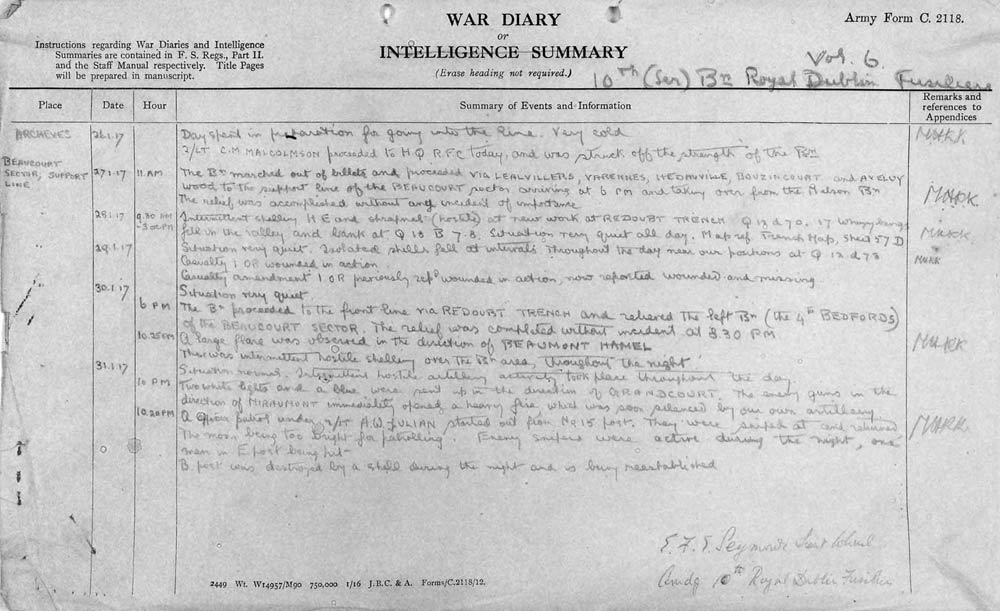 WAR DIARY
or
INTELLIGENCE SUMMARY
(Erase heading not required.)
Army Form C. 2118.
Instructions regarding War Diaries and Intelligence
Summaries are contained in F. S. Regs., Part II.
and the Staff Manual respectively. Title Pages
will be prepared in manuscript.
Vol. 6.
10th (Ser) Bn Royal Dublin Fusiliers
Place Date Hour Summary of Events and Information Remarks and references to Appendices
ARCHEVES 26.1.17 Day spent in preparation for going into the line. Very cold
2/LT C.M MALCOLMSON proceeded to HQ R.F.C today, and was struck off the strength of the Bn
BEAUCOURT SECTOR, SUPPORT LINE 27.1.17 11 AM The Bn marched out of billets and proceeded VIA LEALVILLERS, VARENNES, HEDAUVILLE, BOUZINCOURT and AVELUY
wood to the support line of the BEAUCOURT sector arriving at 6 PM and taking over from the Nelson Bn
The relief was accomplished without any incident of importance
28.1.17 9.30 AM Intermittent shelling H E and shrapnel (hostile) at new work at REDOUBT TRENCH Q 12 d 70. 17 Whizzbangs
-3.00PM fell in the valley and bank at Q 18 B 7.8. Situation very quiet all day. Map ref. French Map, Sheet 57 D
29.1.17 Situation very quiet. Isolated shells fell at intervals throughout the day near our positions at Q 12 d 73
Casualty 1 OR wounded in action
Casualty amendment 1 OR previously rep^d wounded in action, now reported wounded and missing
30.1.17 Situation very quiet
6 PM The Bn proceeded to the front line via REDOUBT TRENCH and relieved the left Bn (the 4th BEDFORDS)
of the BEAUCOURT SECTOR. The relief was completed without incident at 8.30 PM
10.25PM A large flare was observed in the direction of BEAUMONT HAMEL
There was intermittent hostile shelling over the Bn area, throughout the night
31.1.17 Situation normal. Intermittent hostile artillery activity took place throughout the day.
10 PM Two white lights and a blue were sent up in the direction of GRANDCOURT. The enemy guns in the
direction of MIRAUMONT immediately opened a heavy fire, which was soon silenced by our own artillery
10.20PM A Officer patrol under 2/LT A.W. JULIAN started out from No 15 post. They were sniped at and returned
The moon being too bright for patrolling. Enemy snipers were active during the night, one
man in E post being hit
B post was destroyed by a shell during the night and is being reestablished
E. F. E. Seymour Lieut Colonel
Cmdg 10th Royal Dublin Fusiliers
2449 Wt. W14957/M90 750,000 1/16 J.B.C. & A. Forms/C.2118/12.